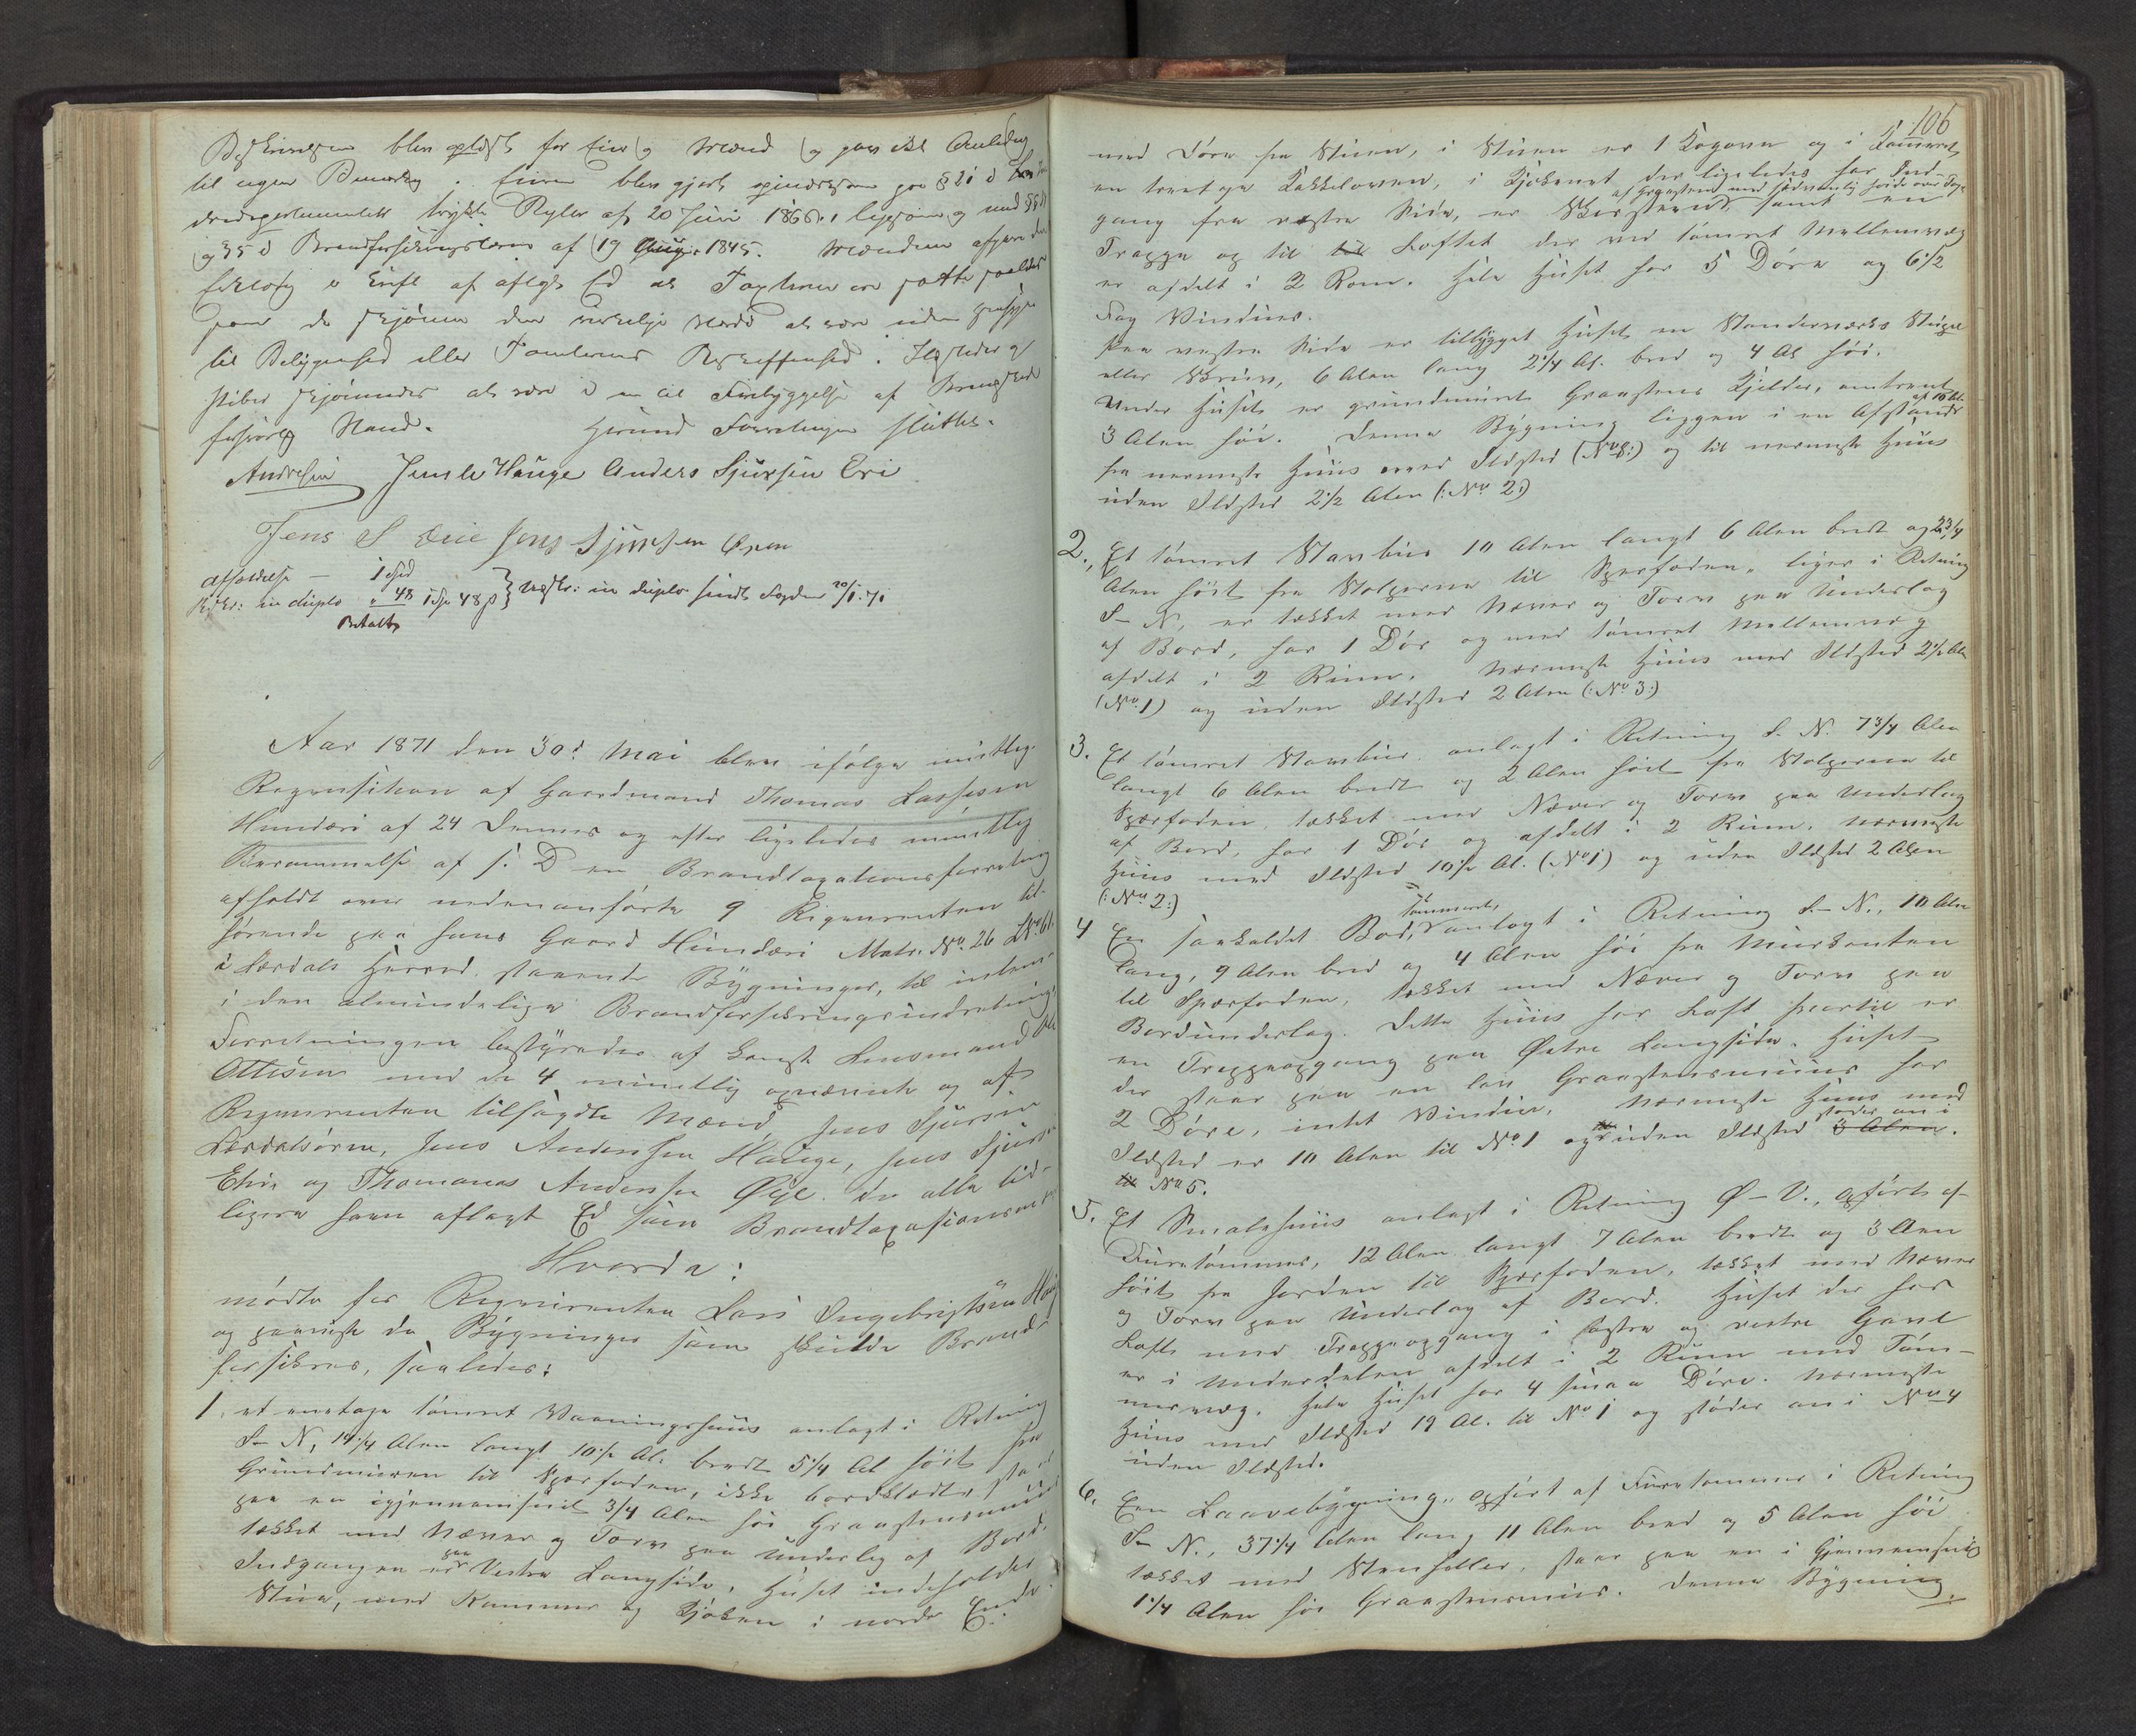 Beskrivelsen blev oplæst for Eier og Mænd og gav ikke Anledning
til nogen Bemærkning. Eieren blev gjort opmærksom paa § 21 i
departementets trykte Regler af 20 Juni 1866, ligesom og med §§
og 35 i Brandforsikringsloven af 19 Aug. 1845. Mændene afgave den
Erklæring i Kraft af aflagt Ed at Taxterne ere satte saaledes
som de skjønne den virkelige Værdi at være uden Hensyn
til Beliggenhed eller Tomternes Beskaffenhed. Ildsteder og
Piber skjønnedes at være i en til Forebyggelse af Brandskade
forsvarlig Stand. Hermed Forretningen sluttet.
Andresen Jens le Hauge Anders Sjursen Eri
Jens S Erie Jens Sjursen Øren
Afholdelse — 1 Spd
Beskr: in duplo " 48 1 Spd 48 s } Udstr: in duplo sendt Fogden 20/1.71
Betalt
Aar 1871 den 30d Mai blev ifølge mundtlig
Reqvisition af Gaardmand Thomas Lassesen
Hunderi af 24 Dennes og efter ligeledes mundtlig
Berammelse af s. D en Brandtaxationsforretning
afholdt over nedenanførte 9 Reqvirenten til-
hørende paa hans Gaard Hunderi Matr. No. 26 LNo 61.
i Lærdals Herred staaende Bygninger, til
i den almindelige Brandforsikringsindretning.
Forretningen bestyredes af konst. Lensmand Ole
Ottesen med de 4 mundtlig opnævnte og af
Reqvirenten tilsagdte Mænd Jens Sjursen
Lærdalsøren, Jens Andersen Hauge, Jens Sjursen
Erie og Thomanes Andersen Øye. der alle tid-
ligere have aflagt Ed som Brandtaxationsmænd
Hvorda:
mødte for Reqvirenten Lars Ingebrigtsen Hauge
og paaviste de Bygninger som skulde Brand-
forsikres, saaledes:
1. et enetages tømret Vaaningshuus anlagt i Retning
S–N, 14 1/4 Alen langt 10 1/2 Al. bredt 5 1/4 Al høit fra
Grundmuren til Sperfoden, ikke bordklædt, staar
paa en igjennemsnit 3/4 Alen høi Graastensmuur
tækket med Næver og Torv paa Underlag af Bord.
Indgangen er paa Vestre Langside. Huset indeholder
Stue, med Kammer og Kjøken i nordre Ende.
106
med Døre fra Stuen, i Stuen er 1 Kogovn og i Kammeret
en treetages Kakkelovn, i Kjøkenet der ligeledes har Ind-
af Graasten med sædvanlig Høide over Taget
gang fra vestre Side, er Skorsteen, samt en
Trappe op til til Loftet der ved tømret Mellemvæg
er afdelt i 2 Rom. Hele Huset har 5 Døre og 6 1/2
Fag Vinduer.
Paa vestre Side er tilbygget Huset en Standværks Skygge
eller Skruv, 6 Alen lang 2 1/4 Al. bred og 4 Al høi.
Under Huset er grundmuret Graastens Kjelder, omtrent
3 Alen høi. Denne Bygning ligger i en Afstand af 10 Al.
fra nermeste Huus med Ildsted (No 8:) og til nermeste Huus
uden Ildsted 2 1/2 Alen (: No 2:)
2., Et tømret Stavbur 10 Alen langt 6 Alen bredt og 2 3/4
Alen høit fra Stolperne til Sperfoden. liger i Retning
S–N, er tækket med Næver og Torv paa Underlag
af Bord, har 1 Dør og med tømret Mellemvæg
afdelt i 2 Rum. Nærmeste Huus med Ildsted 2 1/2 Alen
(No 1) og uden Ildsted 2 Alen (: No 3:)
3. Et tømret Stavbur anlagt i Retning S. N. 7 3/4 Alen
langt 6 Alen bredt og 2 Alen høit fra Stolperne til
Sperfoden, tækket med Næver og Torv paa Underlag
af Bord, har 1 Dør og afdelt i 2 Rum. nærmeste
Huus med Ildsted 10 1/2 Al. (No 1) og uden Ildsted 2 Alen
(: No 2:)
4 En saakaldet Bod, tømmeret, anlagt i Retning S–N., 10 Alen
lang, 9 Alen bred og 4 Alen høi fra Murkanten
til Sperfoden, tækket med Næver og Torv paa
Bordunderlag. Dette Huus har Loft hvortil er
en Trappeopgang paa Østre Langside. Huset
der staar paa en lav Graastensmuur har
2 Døre, intet Vindue. Nærmeste Huus med
Ildsted er 10 Alen til No 1 og uden Ildsted støder an i 3 Alen.
til No 5.
5. Et Smalehuus anlagt i Retning Ø–V., opført af
Furutømmer, 12 Alen langt 7 Alen bredt og 3 Alen
høit fra Jorden til Sperfoden, tækket med Næver
og Torv paa Underlag af Bord. Huset der har
Loft med Trappeopgang i østre og vestre Gavl
er i Underdelen afdelt i 2 Rum med Tøm-
mervæg. Hele Huset har 4 smaa Døre. Nærmeste
Huus med Ildsted 19 Al. til No 1 og støder an i No 4
uden Ildsted.
6. Een Laavebygning, opført af Furutømmer i Retning
S–N., 37 1/4 Alen lang 11 Alen bred og 5 Alen høi
tækket med Stenheller, staar paa en i Gjennemsnit
1 1/4 Alen høi Graastensmuur. Denne Bygning